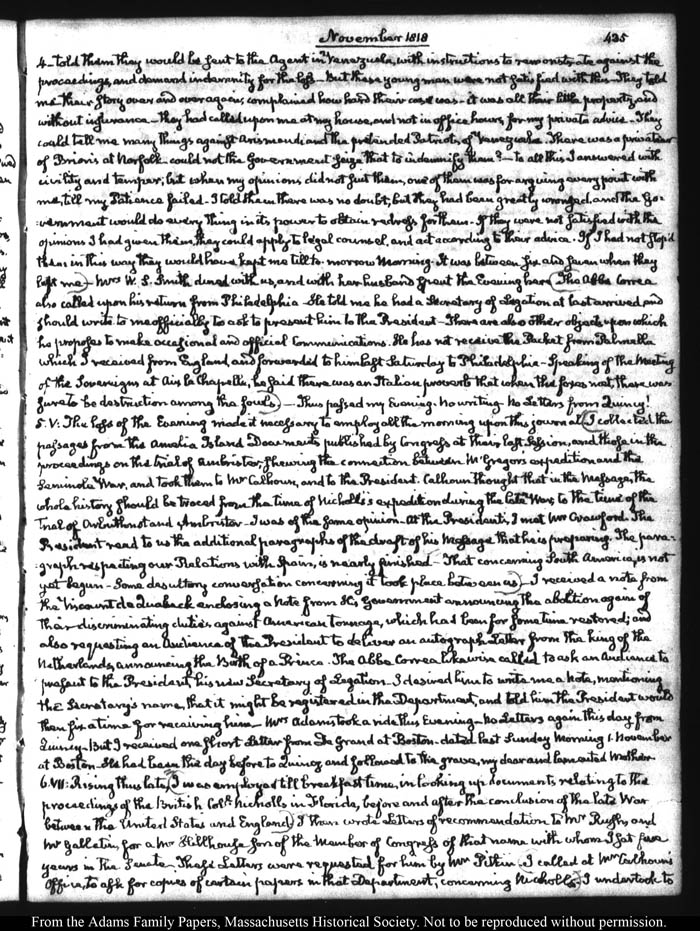 November 1818
425
4. told them they would be sent to the Agent in Venezuela, with instructions to remonstrate against the
proceedings, and demand indemnity for the loss. But these young men were not satisfied with this. They told
me their story over and over again; complained how hard their case was. it was all their little property, and
without insurance. they had called upon me at my house, and not in office hours, for my private advice. They
could tell me many things against Arismendi and the pretended Patriots, of Venezuela. There was a privateer
of Brion's at Norfolk. could not the Government seize that to indemnify them? to all this I answered with
civility and temper; but when my opinions did not suit them, one of them was for arguing every point with
me, till my Patience failed. I told them there was no doubt, but they had been greatly wronged, and the Go-
vernment would do every thing in its power to obtain redress for them. If they were not satisfied with the
opinions I had given them, they could apply to legal counsel, and act according to their advice. If I had not stop'd
them in this way they would have kept me till to-morrow Morning. It was between six and seven when they
left me. Mrs W. S. Smith dined with us, and with her husband spent the Evening here. The Abbé Correa
also called upon his return from Philadelphia. He told me he had a Secretary of Legation at last arrived and
should write to me officially to ask to present him to the President. There are also other objects upon which
he proposes to make occasional and official Communications. He has not receive the Packet from Palmella
which I received from England and forwarded to him last Saturday to Philadelphia. Speaking of the Meeting
of the Sovereigns at Aix la Chapelle, he said there was an Italian proverb that when the foxes met, there was
sure to be destruction among the fowls. Thus passed my Evening. No writing. No Letters from Quincy!
5. V: The loss of the Evening made it necessary to employ all the morning upon this journal. I collected the
passages from the Amelia Island Documents published by Congress at their last Session, and those in the
proceedings on the trial of Ambrister, shewing the connection between McGregor's expedition and the
Seminole War, and took them to Mr Calhoun, and to the President. Calhoun thought that in the Message, the
whole history should be traced from the time of Nicholls's expedition during the late War, to the time of the
Trial of Arbuthnot and Ambrister. I was of the same opinion. At the President's, I met Mr Crawford. The
President read to us the additional paragraphs of the draft of his Message that he is preparing. The para-
graph respecting our Relations with Spain, is nearly finished. That concerning South America, is not
yet begun. Some desultory conversation concerning it took place between us. I received a note from
the Viscount de Quabeck enclosing a Note from his Government announcing the abolition again of
their discriminating duties against American tonnage, which had been for some time restored; and
also requesting an Audience of the President to deliver an autograph Letter from the King of the
Netherlands, announcing the Birth of a Prince. The Abbé Correa likewise called to ask an Audience to
present to the President, his new Secretary of Legation. I desired him to write me a Note, mentioning
the Secretary's name, that it might be registered in the Department, and told him the President would
then fix a time for receiving him. Mrs Adams took a ride this Evening. No Letters again this day from
Quincy. But I received one short Letter from De Grand at Boston. dated last Sunday Morning 1. November
at Boston. He had been the day before to Quincy and followed to the grave, my dear and lamented Mother.
6. VII: Rising thus late, I was employed till breakfast time, in looking up documents relating to the
proceedings of the British Coll. Nicholls in Florida, before and after the conclusion of the late War
between the United States and England. I then wrote Letters of recommendation to Mr Rush, and
Mr Gallatin, for a Mr Hillhouse son of the Member of Congress of that name with whom I sat five
years in the Senate. These Letters were requested for him by Mr Pitkin. I called at Mr Calhoun's
Office, to ask for copies of certain papers in that Department, concerning Nicholls. I undertook to
From the Adams Family Papers, Massachusetts Historical Society. Not to be reproduced without permission.